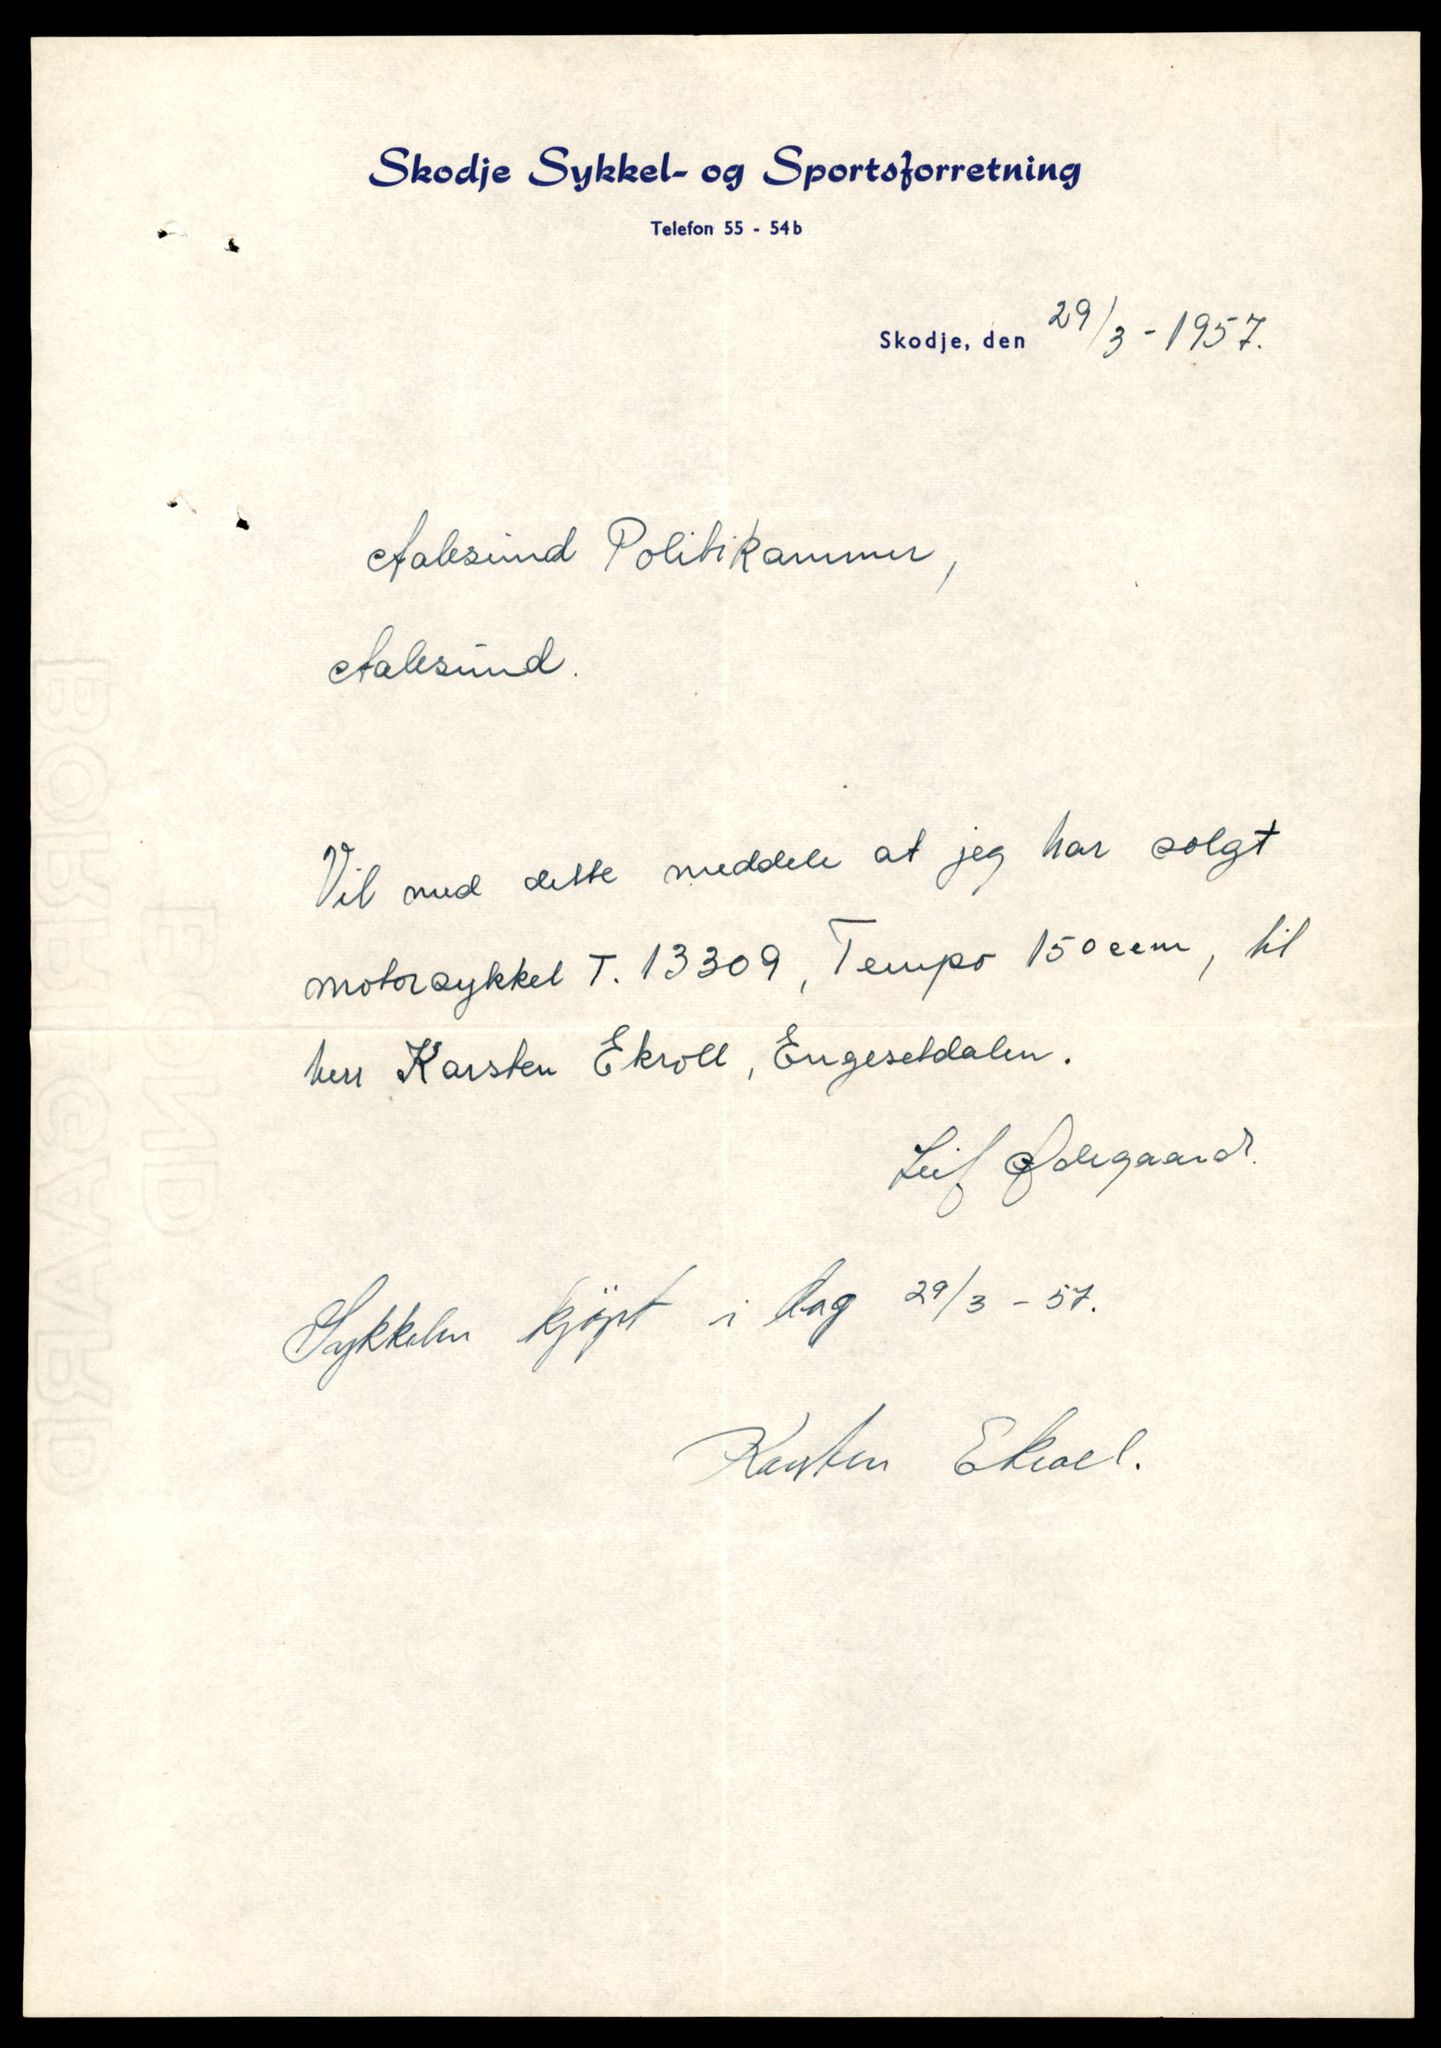 Skodje Sykkel- og Sportsforretning
Telefon 55 - 54b
Skodje, den 29/3 - 1957.
Aalesund Politikammer,
Aalesund.
Vil med dette meddele at jeg har solgt
motorsykkel T. 13309, Tempo 150 ccm, til
herr Karsten Ekroll, Engesetdalen.
Leif Ødegaard.
Sykkelen kjöpt i dag 29/3 - 57.
Karsten Ekroll.
BORREGAARD
BOND